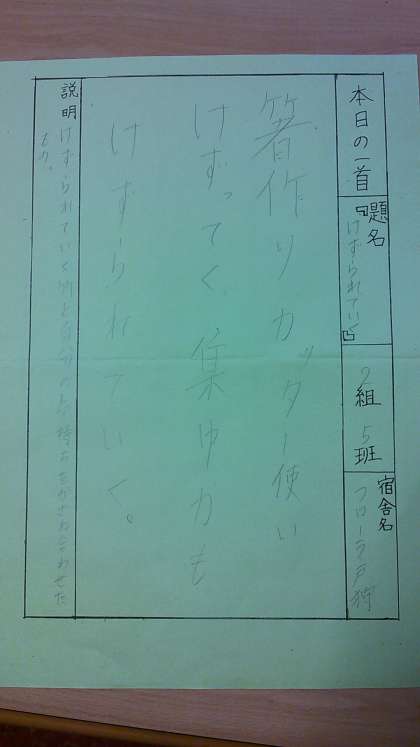 本日の一首
題名
『けずられていく』
2組
5班
宿舎名
フローラ戸狩
箸作りカッター使い
けずってく集中力も
けずられていく。
説明
けずられていく竹と自分の気持ちをかさね合わせた
もの。